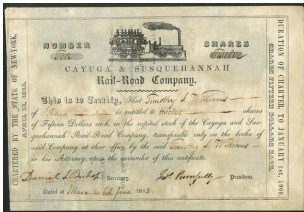 NUMBER
Ten
SHARES
Twelve
CAYUGA & SUSQUEHANNAH
Rail-Road Company.
This is to Certify, That Timothy S Williams
of Ithaca is entitled to twelve shares
of Fifteen Dollars each, in the capital stock of the Cayuga and Sus-
quehannah Rail-Road Company, transferable only on the books of
said Company at their office, by the said Timothy S Williams
or his Attorney, upon the surrender of this certificate.
Secretary.
President.
Dated at Ithaca June 1843
CHARTERED BY THE STATE OF NEW-YORK,
APRIL 18, 1843.
DURATION OF CHARTER TO JANUARY 1st, 1900.
SHARES FIFTEEN DOLLARS EACH.